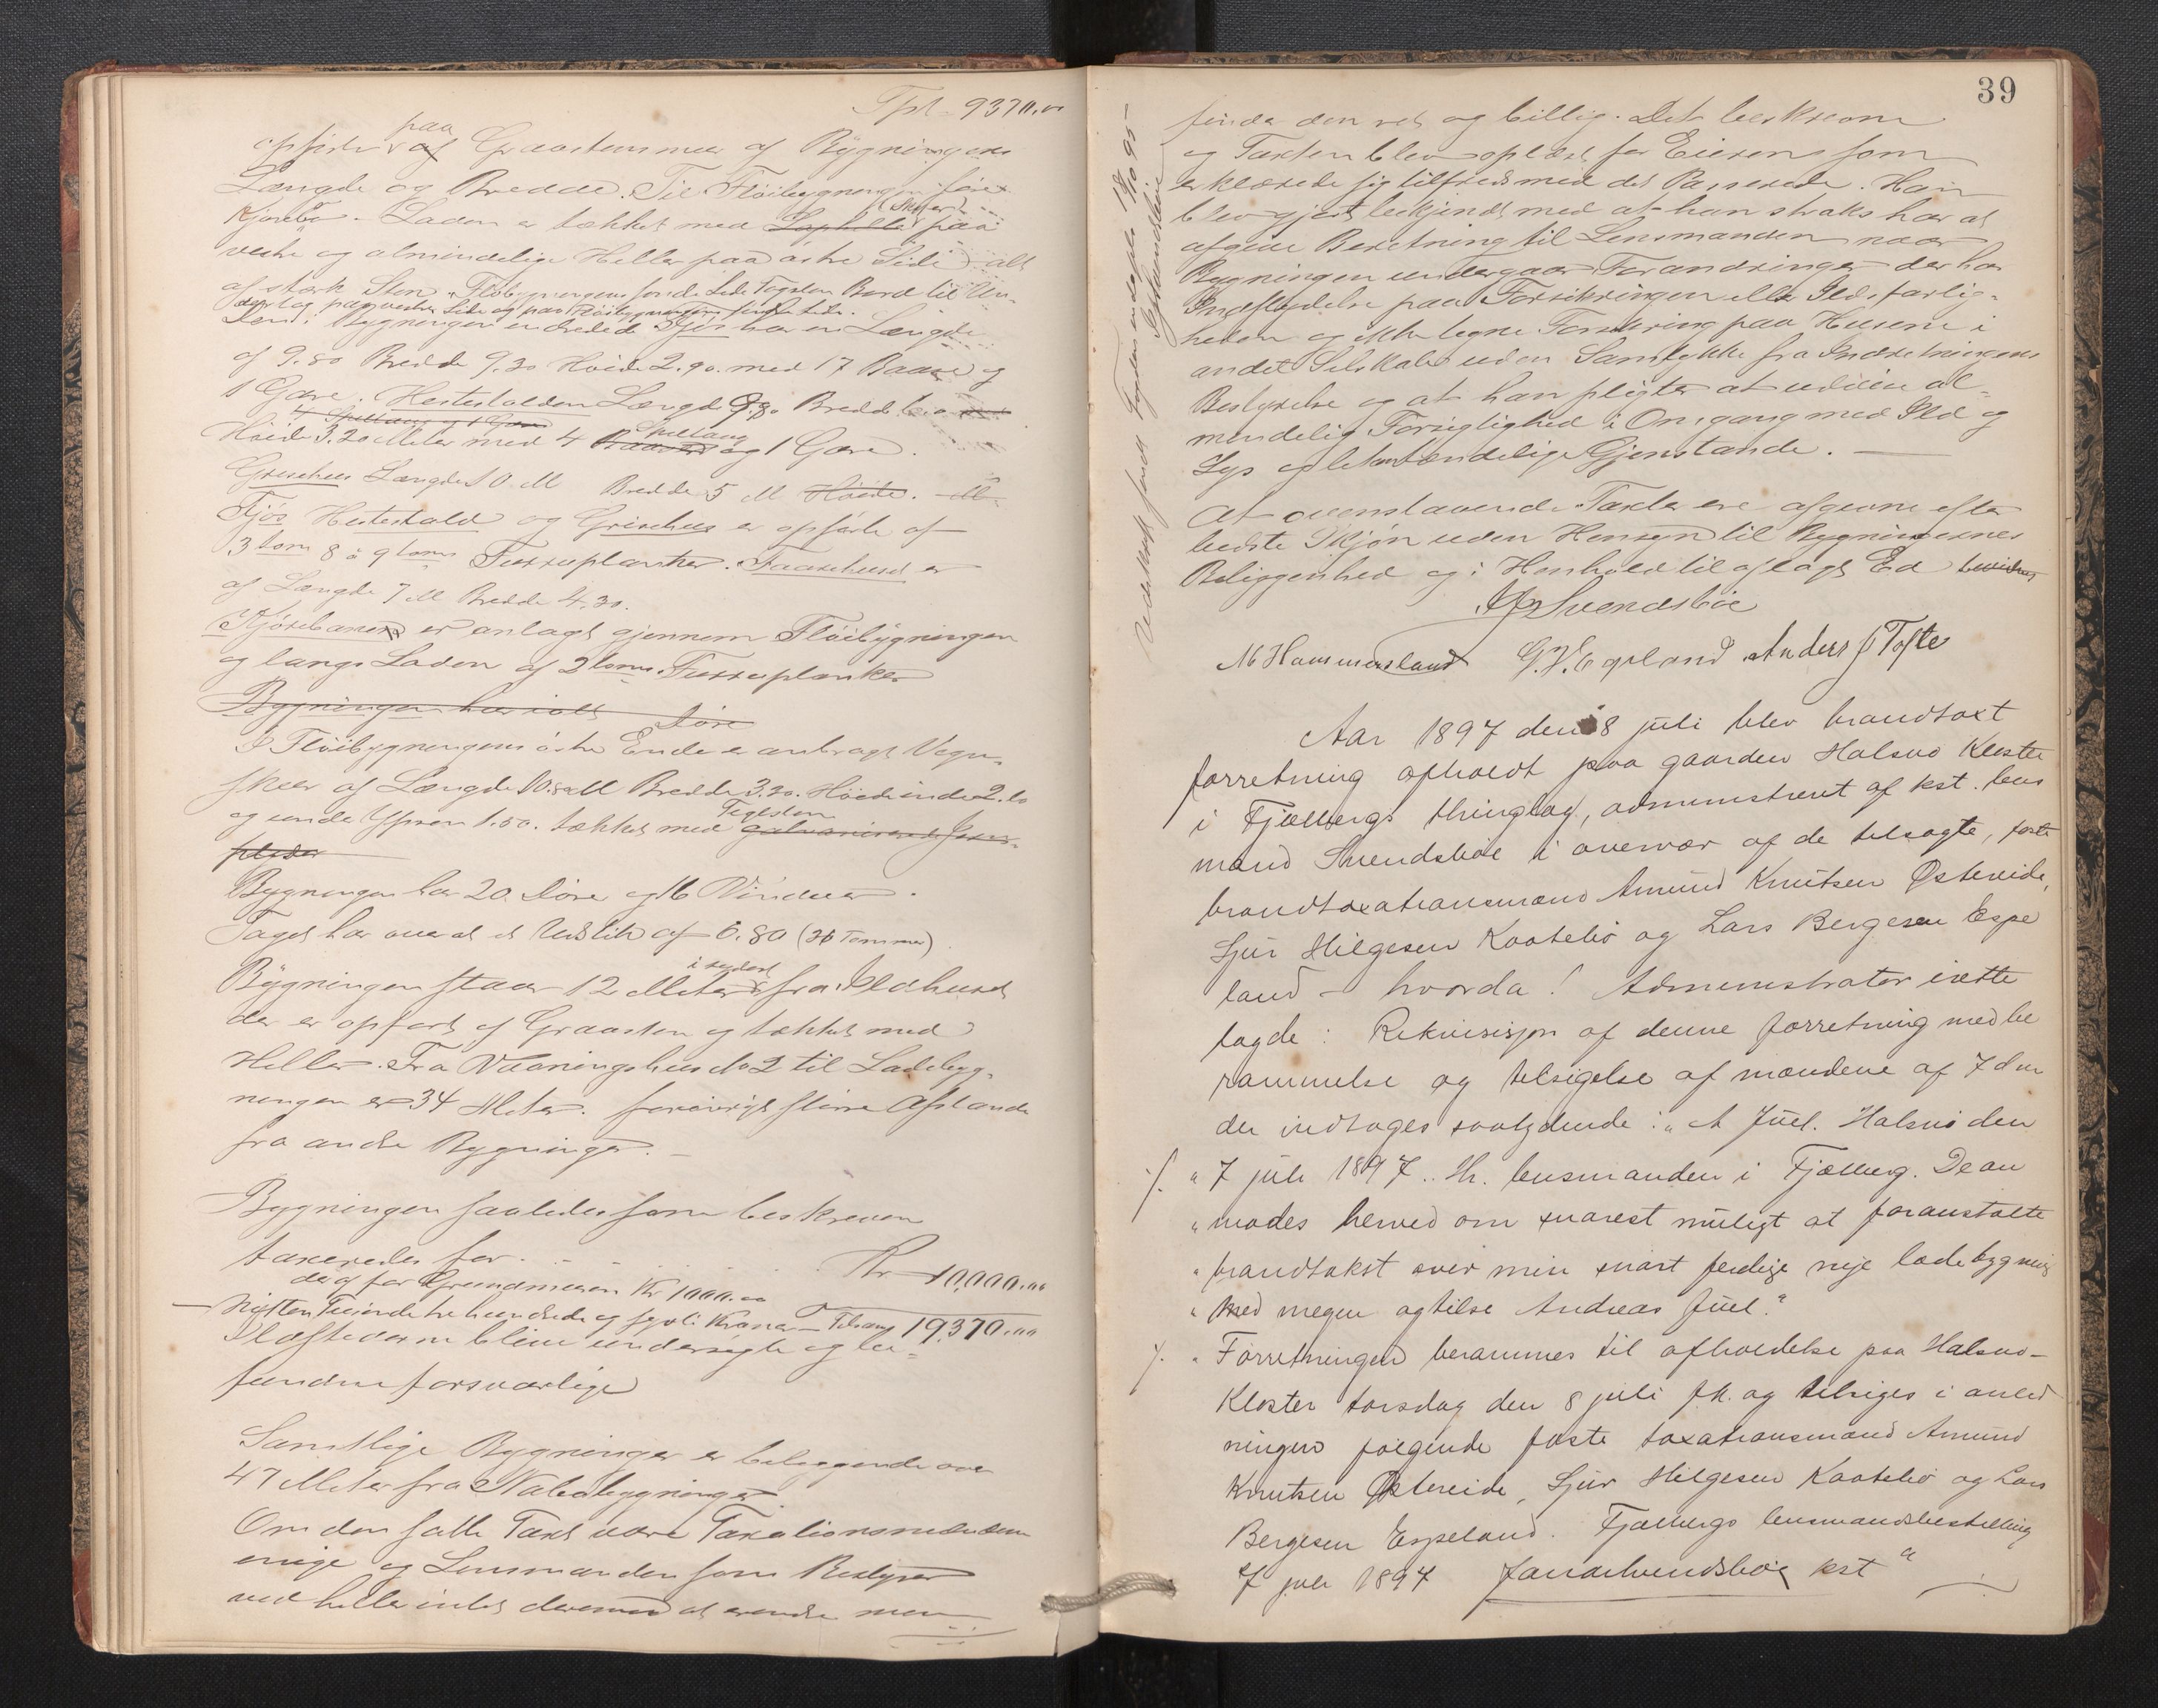 Tpt 9370.00
opførte paa af Graastensmur af Bygningens
Længde og Bredde. Til Fløibygningen fører
Kjørebro - Laden er tækket med Laphelle (Skifer) paa
vestre og almindelige Heller paa østre Side alt
af stærk Sten. Fløibygningens søndre Side Tagsten Bord til Un-
derlag paa vestre Side og paa Fløibygningens søndre Side.
I Bygningen indredede Fjøs har en Længde
af 9.80 Bredde 9.30 Høide 2.90. med 17 Baase og
1 Gare. Hestestalden Længde 9.80 Bredde
4 Spiltaug og 1 Gare
Høide 3.20 Meter med 4 Baase Spiltaug og 1 Gare.
Grisehus Længde 10 M Bredde 5 M Høide. M
Fjøs Hestestald og Grisehus er opførte af
3 tom 8 à 9 toms Furruplanker. Faarehuset er
af Længde 7 M Bredde 4.30.
Kjørebanen er anlagt gjennem Fløibygningen
og langs Laden af 2 toms Furruplanker
Bygningen har ialt Døre
I Fløibygningens østre Ende er anbragt Vogn-
skur af Længde 10.80 M Bredde 3.20. Høide inde 2.10
og under 1.50. tækket med Tegelsten galvaniserede Jern-
plader
Bygningen har 20 Døre og 16 Vinduer.
Taget har overalt et Udstik af 0.80 (36 Tommer).
Bygningen staar 12 Meter i sydost fra Ildhuset
der er opført af Graasten og tækket med
Heller. Fra Vaaningshus No 2 til Ladebyg-
ningen er 34 Meter. forøvrigt større Afstande
fra andre Bygninger. -
Bygningen saaledes som beskreven
taxeredes for - Kr 10,000.00
deraf for Grundmuren Kr 1000.00
Nitten Tusinde tre hundrede og sytti Kroner - Tilsam 19,370.00
Ildstederne bleve undersøgte og be-
fundne forsvarlige
Samtlige Bygninger er beliggende over
47 Meter fra Nabobygninger.
Om den satte Taxt vare Taxationsmændene
enige og Lensmanden som Bestyrer
ved heller intet derimod at erindre men
39
finde den ret og billig. Det beskrevne
og Taxten blev oplæst for Eieren som
erklærede sig tilfreds med det Passerede. Han
blev gjort bekjendt med at han straks har at
afgive Beretning til Lensmanden naar
Bygningen undergaar Forandringer der har
Indflydelse paa Forsikringen eller Ildsfarlig-
heden og ikke tegne Forsikring paa Husene i
andet Selskab uden Samtykke fra Indretningens
Bestyrelse og at han pligter at udvise al-
mindelig Forsigtighed i Omgang med Ild og
Lys og letantændelige Gjenstande. -
At ovenstaaende Taxter ere afgivne efter
bedste Skjøn uden Hensyn til Bygningernes
Beliggenhed og i Henhold til aflagt Ed bevidnes
Svendsbøe
M Hammersland G. H. Egeland Anders J Tofte
Aar 1897 den 8 juli blev brandtaxt
forretning afholdt paa gaarden Halsnø Kloster
i Fjelbergs thinglag, administreret af kst. lens
mand Svendsbøe i overvær af de tilsagte, faste
brandtaxationsmænd Amund Knutsen Østereide,
Sjur Hilgesen Kaatebø og Lars Bergesen Espe
land - hvorda! Administrator irette
lagde: Rekvisisjon af denne forretning med be
rammelse og tilsigelse af mændene af 7 dns
der indtages saalydende: "A Juel. Halsnø den
" 7 juli 1897 .. Hr. lensmanden i Fjælberg. De an
" modes herved om snarest muligt at foranstalte
" brandtakst over min snart ferdige nye ladebygning
" Med megen agtelse Andreas Juel."
" Forretningen berammes til afholdelse paa Halsnø-
Kloster torsdag den 8 juli fk. og tilsiges i anled
ningen følgende faste taxationsmænd Amund
Knutsen Østereide, Sjur Hilgesen Kaatebø og Lars
Bergesen Espeland. Fjælbergs lensmandsbestilling
7 juli 1897 Svendsbøe kst"